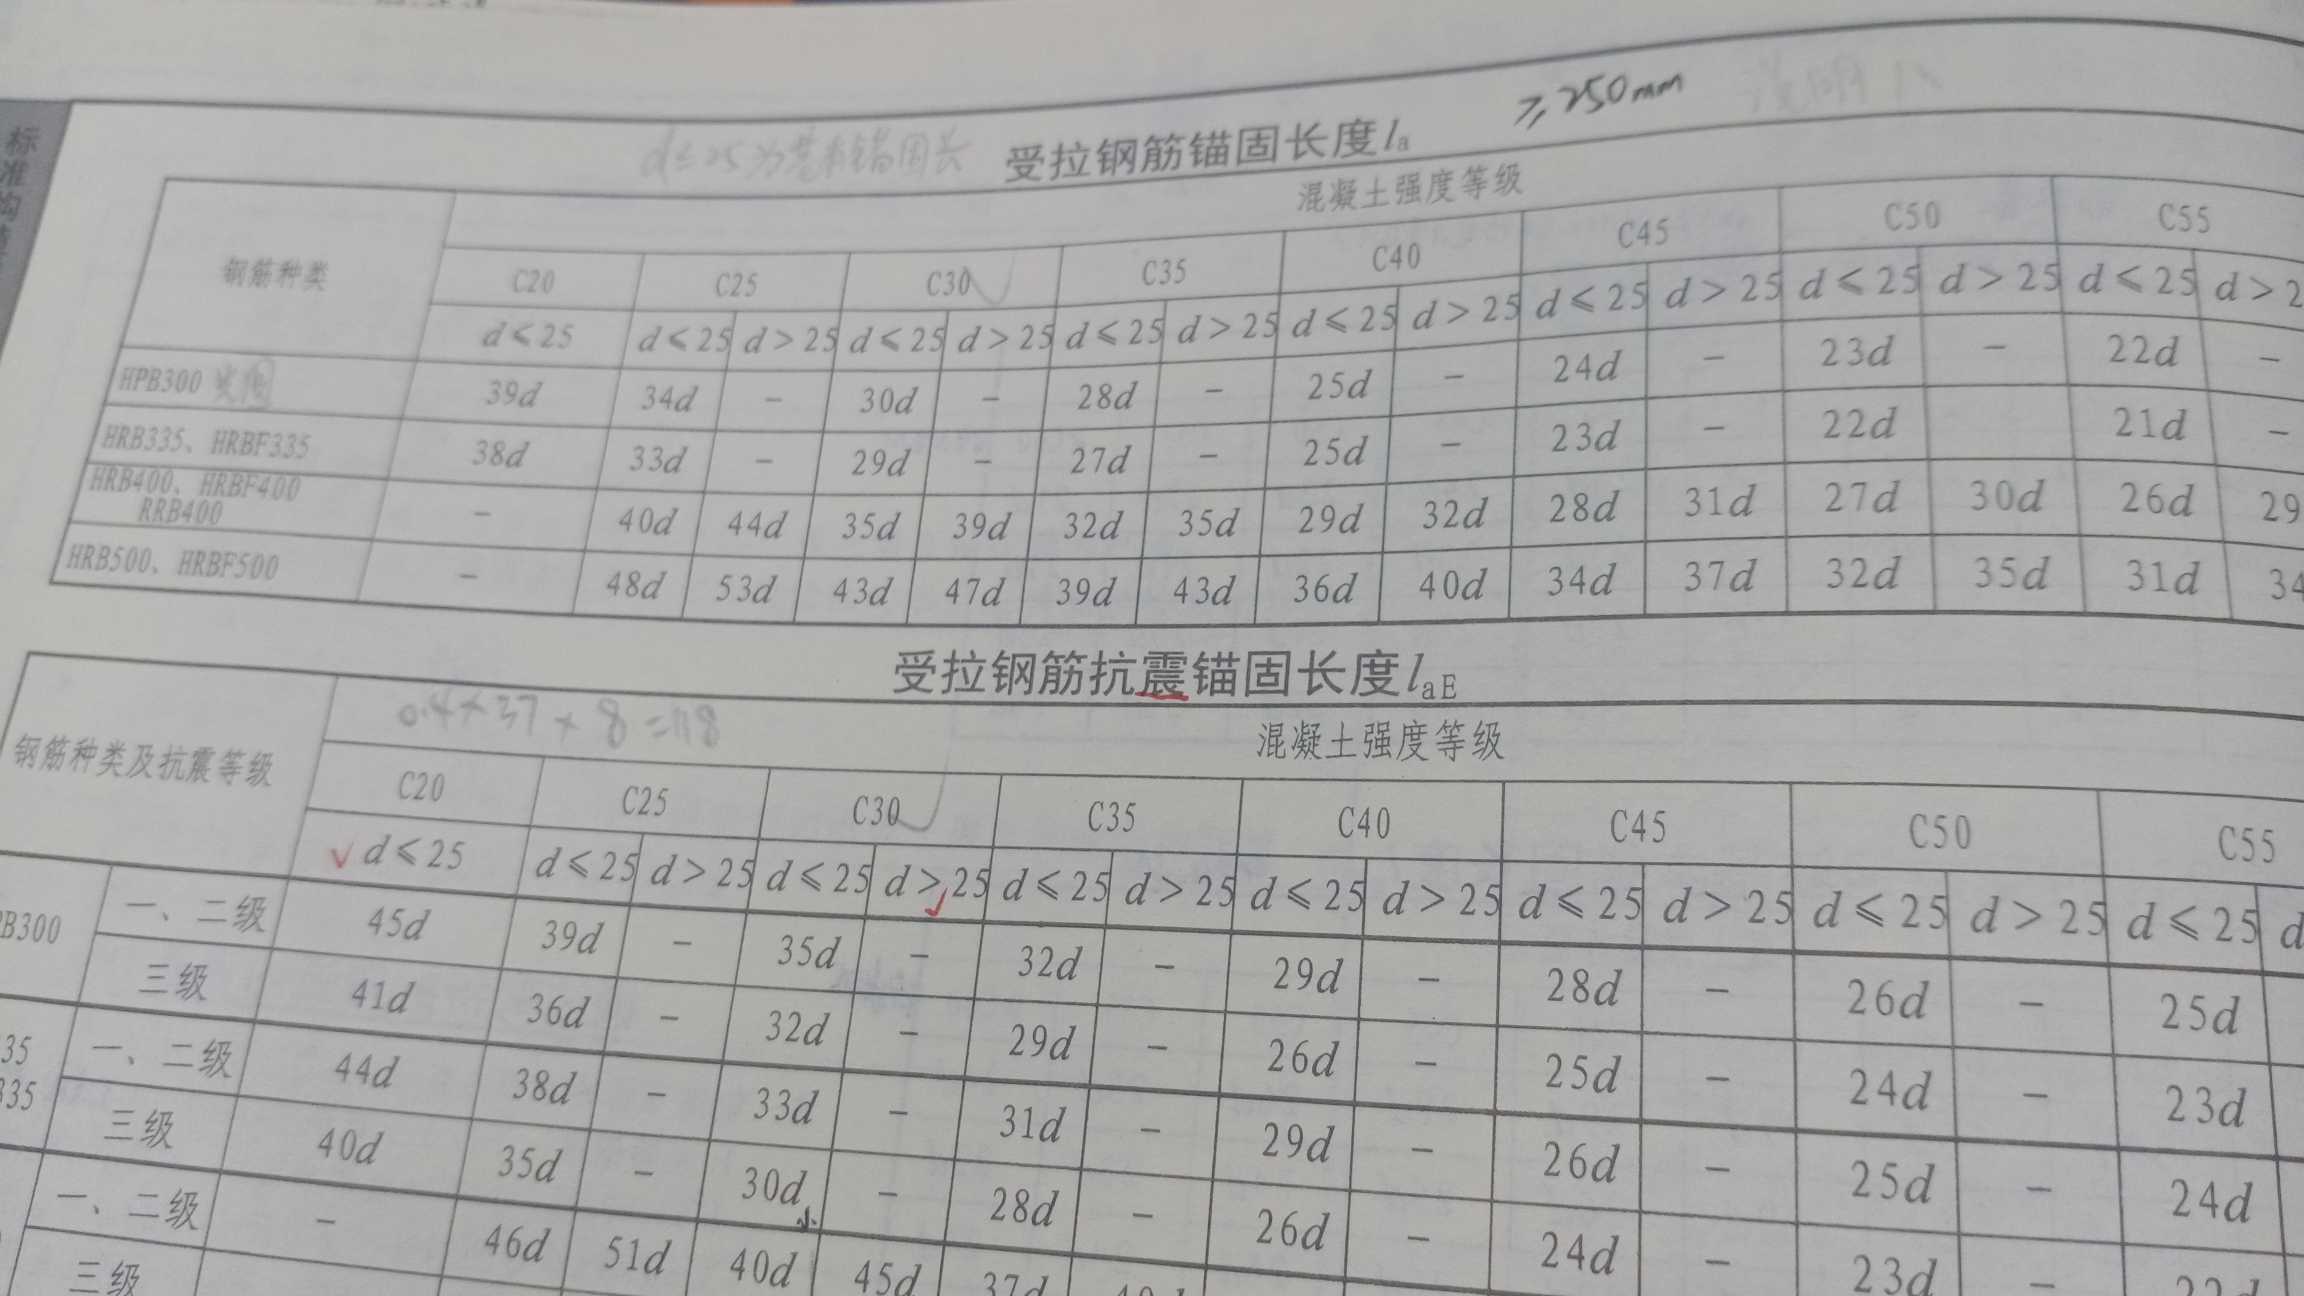 标准构
≥250mm
d≤25为基本锚固长 受拉钢筋锚固长度la
钢筋种类 混凝土强度等级
C20 C25 C30 C35 C40 C45 C50 C55
d≤25 d≤25 d>25 d≤25 d>25 d≤25 d>25 d≤25 d>25 d≤25 d>25 d≤25 d>25 d≤25 d>2
HPB300 39d 34d - 30d - 28d - 25d - 24d - 23d - 22d -
HRB335、HRBF335 38d 33d - 29d - 27d - 25d - 23d - 22d 21d -
HRB400、HRBF400
RRB400 - 40d 44d 35d 39d 32d 35d 29d 32d 28d 31d 27d 30d 26d 29
HRB500、HRBF500 - 48d 53d 43d 47d 39d 43d 36d 40d 34d 37d 32d 35d 31d 34
受拉钢筋抗震锚固长度laE
0.4×37×8=118
钢筋种类及抗震等级 混凝土强度等级
C20 C25 C30 C35 C40 C45 C50 C55
d≤25 d≤25 d>25 d≤25 d>25 d≤25 d>25 d≤25 d>25 d≤25 d>25 d≤25 d>25 d≤25 d
B300 一、二级 45d 39d - 35d - 32d - 29d - 28d - 26d - 25d
三级 41d 36d - 32d - 29d - 26d - 25d - 24d - 23d
35 一、二级 44d 38d - 33d - 31d - 29d - 26d - 25d - 24d
335 三级 40d 35d - 30d - 28d - 26d - 24d - 23d -
一、二级 - 46d 51d 40d 45d 37d
三级